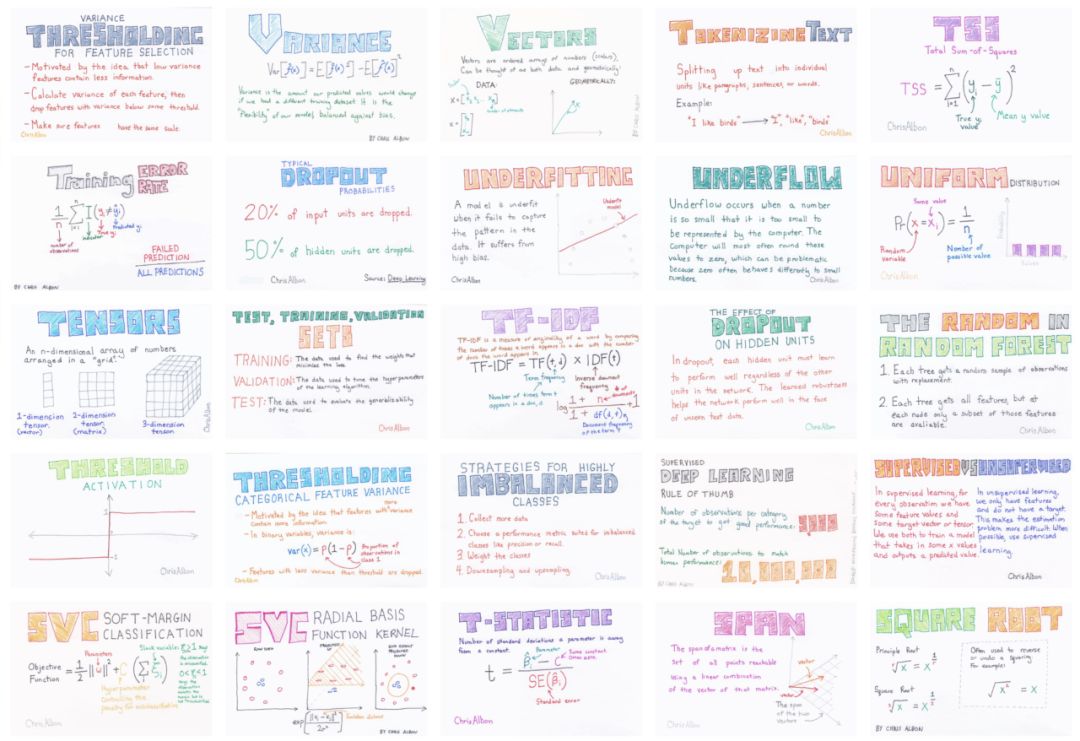 VARIANCE
THRESHOLDING
FOR FEATURE SELECTION
- Motivated by the idea that low variance
features contain less information.
- Calculate variance of each feature, then
drop features with variance below some threshold.
- Make sure features have the same scale.
ChrisAlbon
VARIANCE
Var[f̂(x)] = E[f̂(x)²] - E[f̂(x)]²
Variance is the amount our predicted values would change
if we had a different training dataset. It is the
"flexibility" of our model, balanced against bias.
BY CHRIS ALBON
VECTORS
Vectors are ordered arrays of numbers (scalars).
Can be thought of as both data and geometrically
DATA:
GEOMETRICALLY:
TOKENIZING TEXT
Splitting up text into individual
units like paragraphs, sentences, or words.
Example:
"I like birds" → "I", "like", "birds"
ChrisAlbon
TSS
Total Sum-of-Squares
TSS = Σ (yᵢ - ȳ)²
i=1
True y
value
Mean y value
ChrisAlbon
Training ERROR
RATE
number of
observations
indicator
True yᵢ
Predicted yᵢ
FAILED
PREDICTION
ALL PREDICTIONS
BY CHRIS ALBON
TYPICAL
DROPOUT
PROBABILITIES
20% of input units are dropped.
50% of hidden units are dropped.
ChrisAlbon
Source: Deep Learning
UNDERFITTING
A model is underfit
when it fails to capture
the pattern in the
data. It suffers from
high bias.
Underfit
model
ChrisAlbon
UNDERFLOW
Underflow occurs when a number
is so small that it is too small to
be represented by the computer. The
Computer will most often round these
values to zero, which can be problematic
because zero often behaves differently to small
numbers.
ChrisAlbon
UNIFORM DISTRIBUTION
Some value
Pr(x = xᵢ) = 1/n
Random
variable
Number of
possible value
Probability
Values
ChrisAlbon
TENSORS
An n-dimensional array of numbers
arranged in a "grid".
1-dimension
tensor
(vector)
2-dimension
tensor
(matrix)
3-dimension
tensor
ChrisAlbon
TEST, TRAINING, VALIDATION
SETS
TRAINING: The data used to find the weights that
minimizes the loss
VALIDATION: The data used to tune the hyperparameters
of the learning algorithm.
TEST: The data used to evaluate the generalizability
of the model.
ChrisAlbon
TF-IDF
TF-IDF is a measure of originality of a word by comparing
the number of times a word appears in a doc with the number
of docs the word appears in.
TF-IDF = TF(t,d) × IDF(t)
Term frequency
Inverse document
frequency
Number of times term t
appears in a doc, d
# of
documents
log (1 + n)/(1 + df(d,t)) + 1
Document frequency
of the term t
THE EFFECT OF
DROPOUT
ON HIDDEN UNITS
In dropout, each hidden unit must learn
to perform well regardless of the other
units in the network. The learned robustness
helps the network perform well in the face
of unseen test data.
ChrisAlbon
THE RANDOM IN
RANDOM FOREST
1. Each tree gets a random sample of observations
with replacement.
2. Each tree gets all features, but at
each node only a subset of those features
are avaliable.
ChrisAlbon
THRESHOLD
ACTIVATION
ChrisAlbon
THRESHOLDING
CATEGORICAL FEATURE VARIANCE
- Motivated by the idea that features with more variance
contain more information.
- In binary variables, variance is:
var(x) = p(1 - p)
Proportion of
observations in
class 1
- Features with less variance than threshold are dropped.
ChrisAlbon
STRATEGIES FOR HIGHLY
IMBALANCED
CLASSES
1. Collect more data
2. Choose a performance metric suited for imbalanced
classes like precision or recall.
3. Weight the classes
4. Downsampling and upsampling.
ChrisAlbon
SUPERVISED
DEEP LEARNING
RULE OF THUMB
Number of observations per category
of the target to get good performance:
Total Number of observations to match
human performance:
10,000,000
BY CHRIS ALBON
SUPERVISED VS UNSUPERVISED
In supervised learning, for
every observation we have
some feature values and
some target vector or tensor.
We use both to train a model
that takes in some x values
and outputs a predicted value.
In unsupervised learning,
we only have features
and do not have a target.
This makes the estimation
problem more difficult. When
possible, use supervised
learning.
ChrisAlbon
SVC SOFT-MARGIN
CLASSIFICATION
Objective
Function
Parameters
Slack variable:
Hyperparameter
controlling the
penalty for misclassification
ChrisAlbon
SVC RADIAL BASIS
FUNCTION KERNEL
Euclidean distance
BY CHRIS ALBON
T-STATISTIC
Number of standard deviations a parameter is away
from a constant.
Parameter
Some constant
often zero
t = (β̂ - C)/SE(β̂ᵢ)
Standard error
ChrisAlbon
SPAN
The span of a matrix is the
Set of all points reachable
using a linear combination
of the vector of that matrix.
vector
vector
The span
of the two
vectors
ChrisAlbon
SQUARE ROOT
Principle Root
Square Root
Often used to reverse
or undo a squaring
for example:
√x² = x
BY CHRIS ALBON